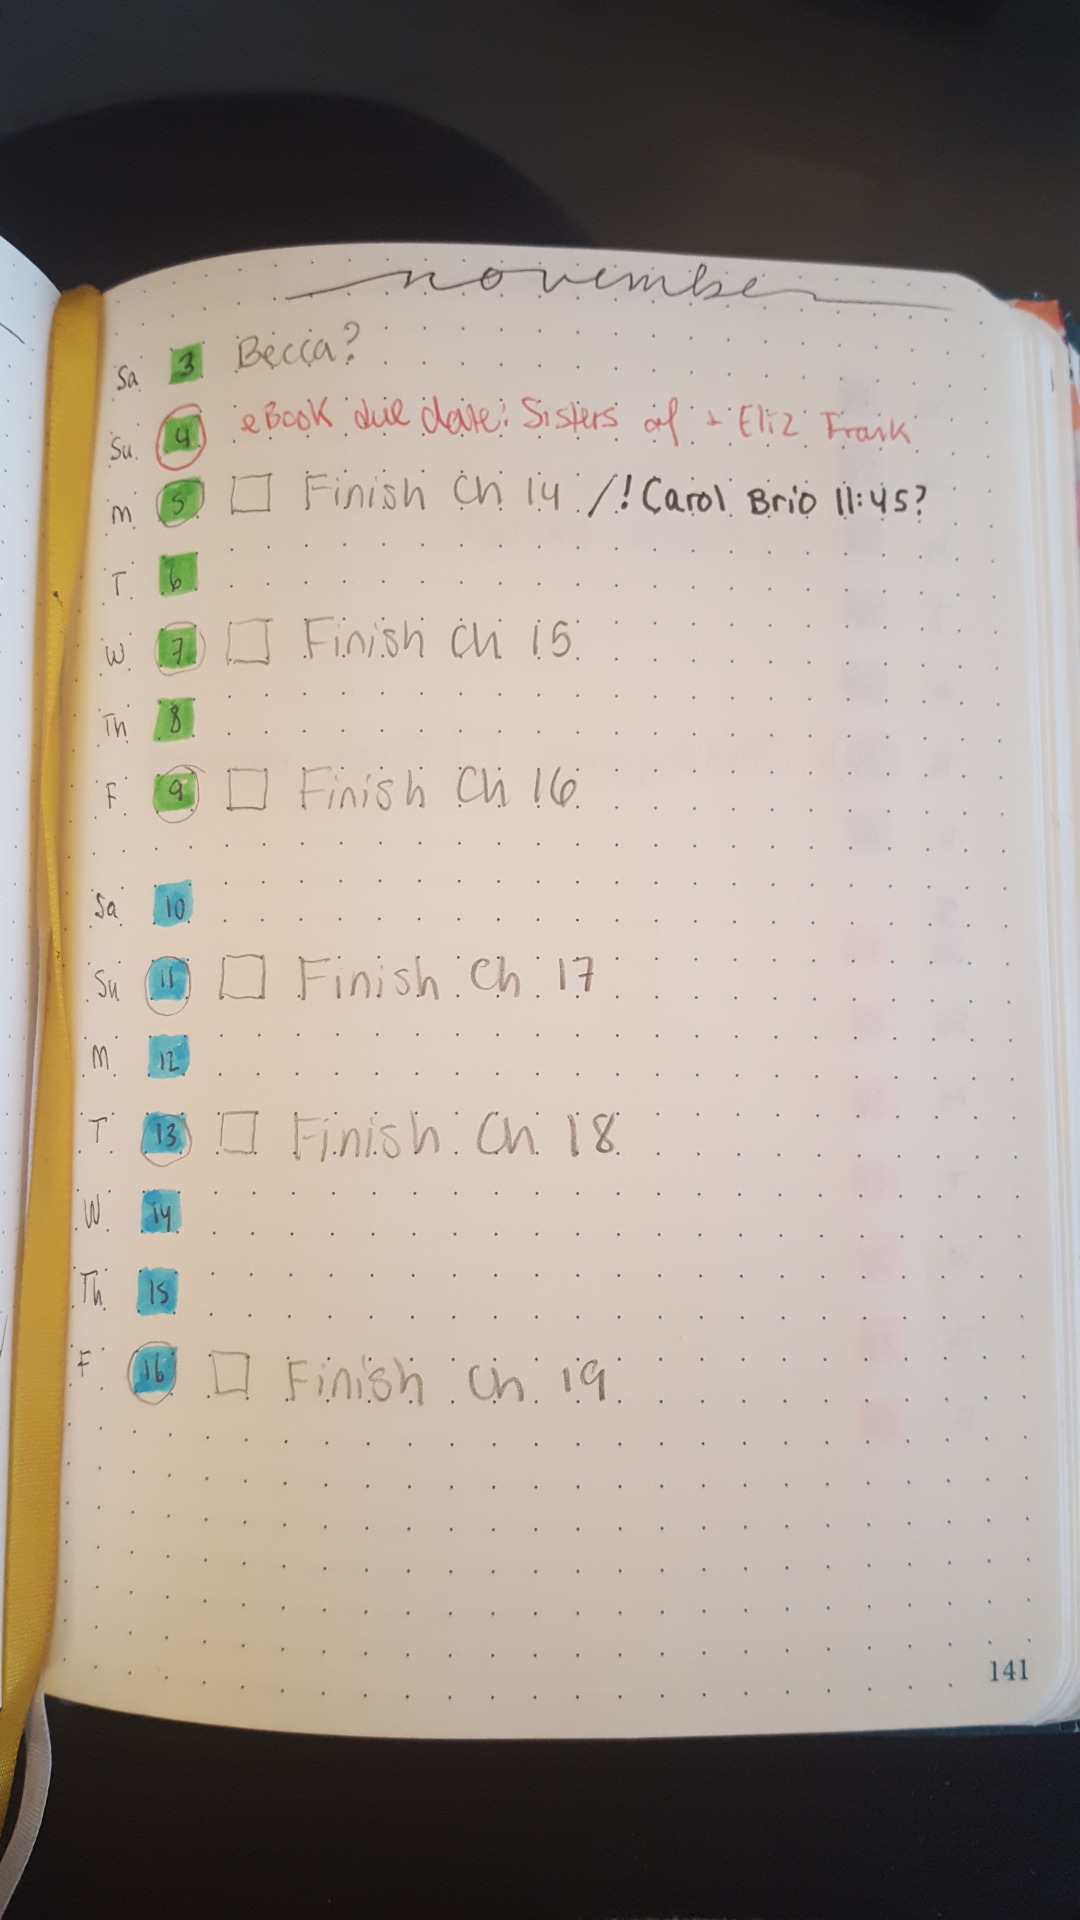 november
Sa 3 Becca?
Su 4 eBook due date: Sisters of + Eliz Frank
M 5 Finish Ch 14 /! Carol Brio 11:45?
T 6
W 7 Finish Ch 15
Th 8
F 9 Finish Ch 16
Sa 10
Su 11 Finish Ch 17
M 12
T 13 Finish Ch 18
W 14
Th 15
F 16 Finish Ch 19
141